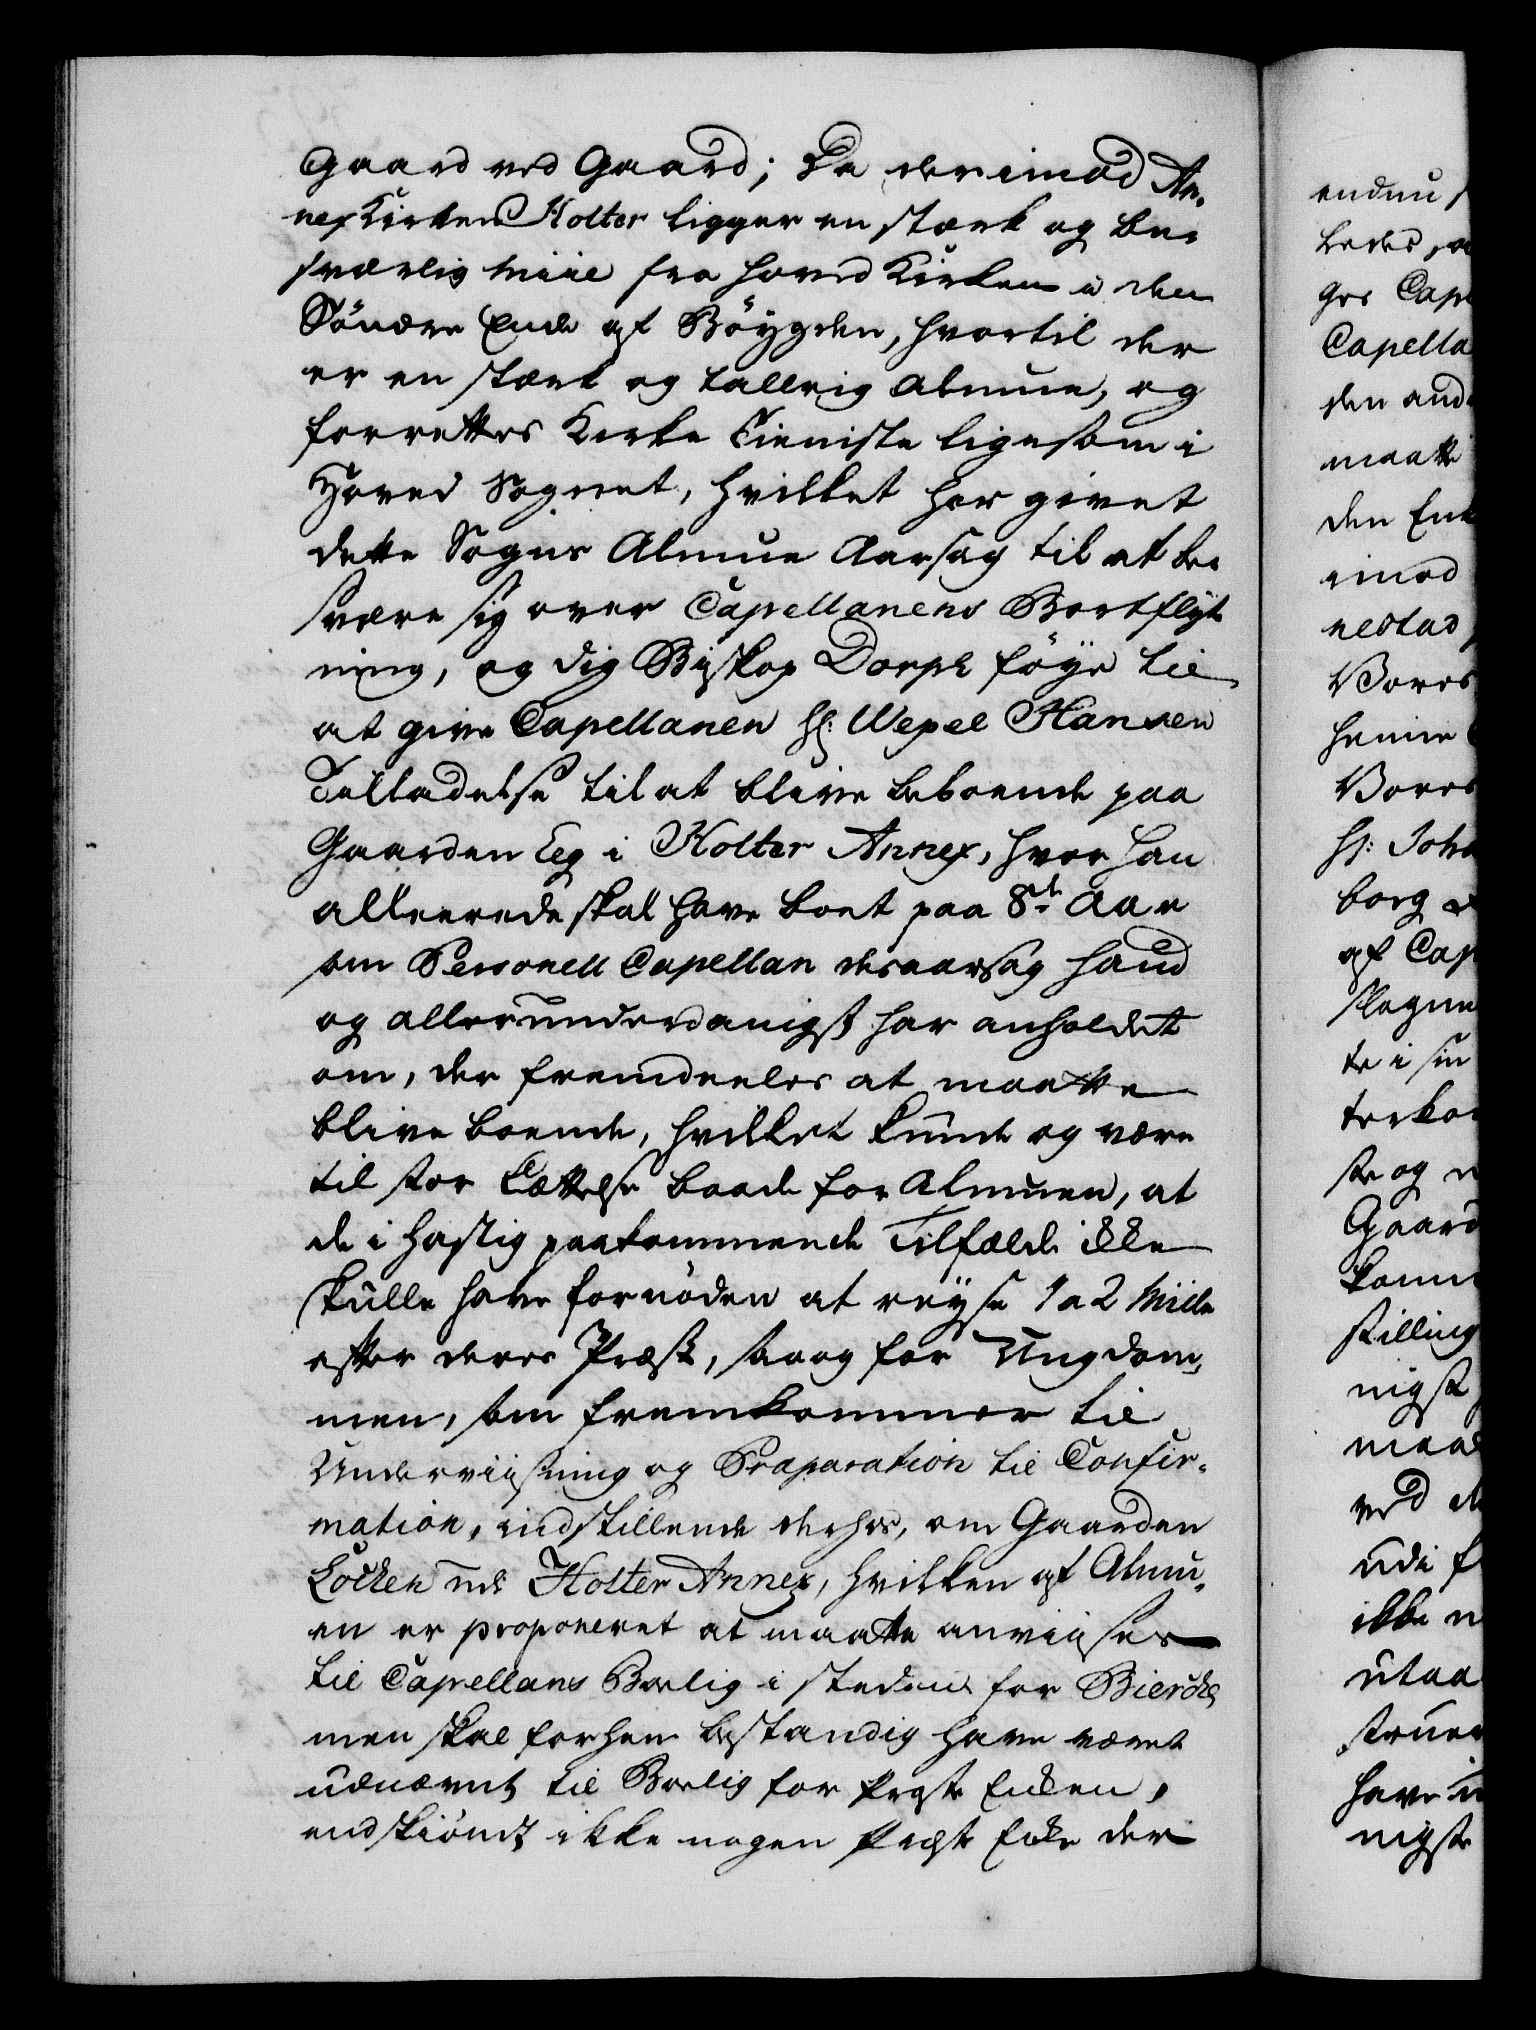 Gaard ved Gaard; Da derimod An-
nex Kirken Holter ligger en stærk og be-
sværlig Miile fra Hoved Kirken i den
Söndre Ende af Böygden, hvortil der
er en stærk og talrig Almue, og
forrettes Kirke Tieniste ligesom i
Hoved Sognet, hvilket har givet
dette Sogns Almue Aarsag til at be-
svære sig over Capellanens Bortflyt-
ning, og dig Biskop Dorph föye til
at give Capellanen Hr: Wepel Hansen
Tilladelse til at blive beboende paa
Gaarden Eeg i Holter Annex, hvor han
allereede skal have boet paa 8de Aar
som Personell Capellan desaarsag hand
og allerunderdanigst har anholdet
om, der fremdeeles at maatte
blive boende, hvilket kunde og være
til stor Lættelse baade for Almuen, at
de i hastig paakommende Tilfælde ikke
skulle have fornöden at reyse 1 a 2 Miile
efter deres Præst, saa og for Ungdom-
men, som fremkommer til
Underviisning og Præparation til Confir-
mation, indstillende derhos, om Gaarden
Löcken udi Holter Annex, hvilken af Almu-
en er proponeret at maatte anviises
til Capellans Boelig i stedin for Bierche
men skal forhen bestandig have været
udnævnt til Boelig for Præste Enken,
endskiöndt ikke nogen Præste Enke der
endnu
ges Cap
Capella
den and
maatte
den Enk
imod
nestad
Vores
henne
Vores
Hr: Joha
borg
af Cap
te i sin
ste og
Gaard
stilling
nigst
maa
ved
udi f
ikke
utaa
struer
have
nigste